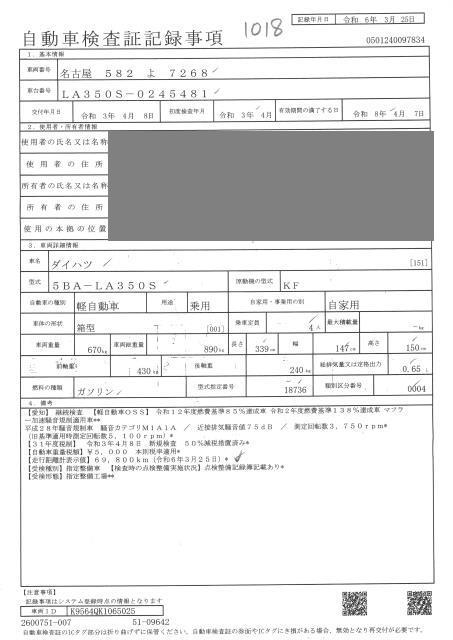 1018
記録年月日 令和 6年 3月 25日
自動車検査証記録事項
0501240097834
1．基本情報
車両番号 名古屋 582 よ 7268
車台番号 LA350S－0245481
交付年月日 令和 3年 4月 8日 初度検査年月 令和 3年 4月 有効期間の満了する日 令和 8年 4月 7日
2．使用者・所有者情報
使用者の氏名又は名称
使用者の住所
所有者の氏名又は名称
所有者の住所
使用の本拠の位置
3．車両詳細情報
車名 ダイハツ [151]
型式 5BA－LA350S 原動機の型式 KF
自動車の種別 軽自動車 用途 乗用 自家用・事業用の別 自家用
車体の形状 箱型 [001] 乗車定員 4人 最大積載量 －kg
車両重量 670kg 車両総重量 890kg 長さ 339cm 幅 147cm 高さ 150cm
前軸重 430kg 後軸重 240kg 総排気量又は定格出力 0.65 L
燃料の種類 ガソリン 型式指定番号 18736 類別区分番号 0004
4．備考
【愛知】 継続検査 【軽自動車OSS】 令和12年度燃費基準85％達成車 令和2年度燃費基準138％達成車 マフラ
ー加速騒音規制適用車**
平成28年騒音規制車 騒音カテゴリM1A1A ／ 近接排気騒音値75dB ／ 測定回転数3，750rpm*
(旧基準適用時測定回転数5，100rpm)*
【31年度税制】 令和3年4月8日 新規検査 50％減税措置済み*
【自動車重量税額】￥5，000 本則税率適用*
【走行距離計表示値】69，800km(令和6年3月25日)*
【受検種別】指定整備車 【検査時の点検整備実施状況】点検整備記録簿記載あり*
【受検形態】指定整備工場**
【注意事項】
記録事項はシステム登録時点の情報となります
車両ID K9564QK1065025
2600751-007 51-09642
自動車検査証のICタグ部分は折り曲げずに保管ください。自動車検査証の券面やICタグにき損がある場合、無効となり再交付が必要です。